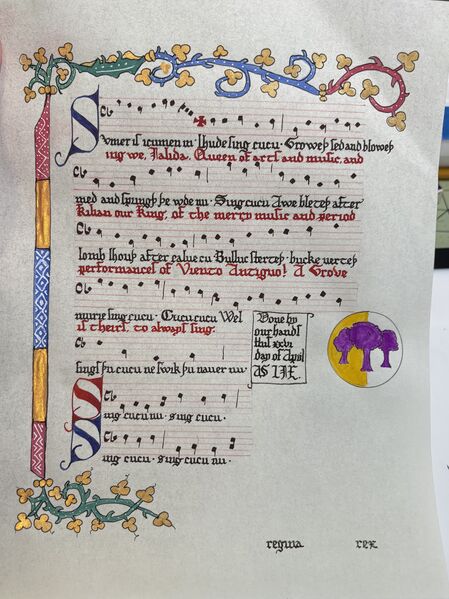 Sumer is icumen in · lhude sing cucu · Groweþ sed and bloweþ
ing we, Jahida, Queen of arts and music, and
med and springþ þe wde nu · Sing cucu Awe bleteþ after
Kilian our King, of the merry music and period
lomb lhouþ after calue cu · Bulluc sterteþ · bucke uerteþ
performances of Viento Antiguo! A Grove
murie sing cucu · Cucu cucu Wel
is theirs, to always sing:
singes þu cucu ne swik þu nauer nu ·
Done by
our hands
this xxvi
day of April
AS LIX.
Sing cucu nu · sing cucu ·
Sing cucu · sing cucu nu ·
regina rex